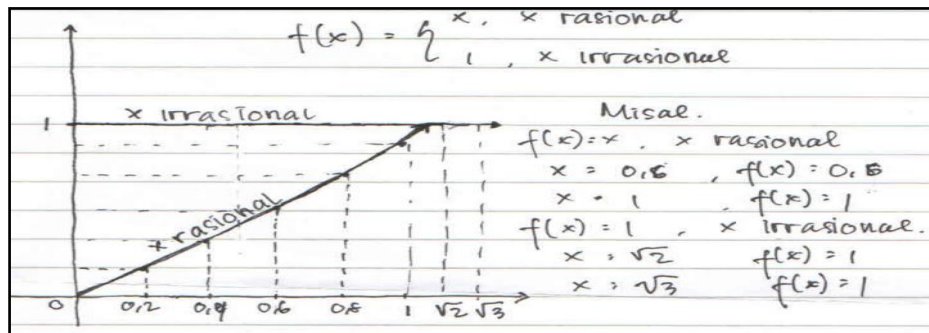 f(x) = { x, x rasional
1, x irrasional
x irrasional
1
x rasional
0 0,2 0,4 0,6 0,8 1 √2 √3
Misal.
f(x)=x, x rasional
x = 0,6, f(x)=0,6
x = 1, f(x)=1
f(x)=1, x irrasional.
x = √2 f(x)=1
x = √3 f(x)=1